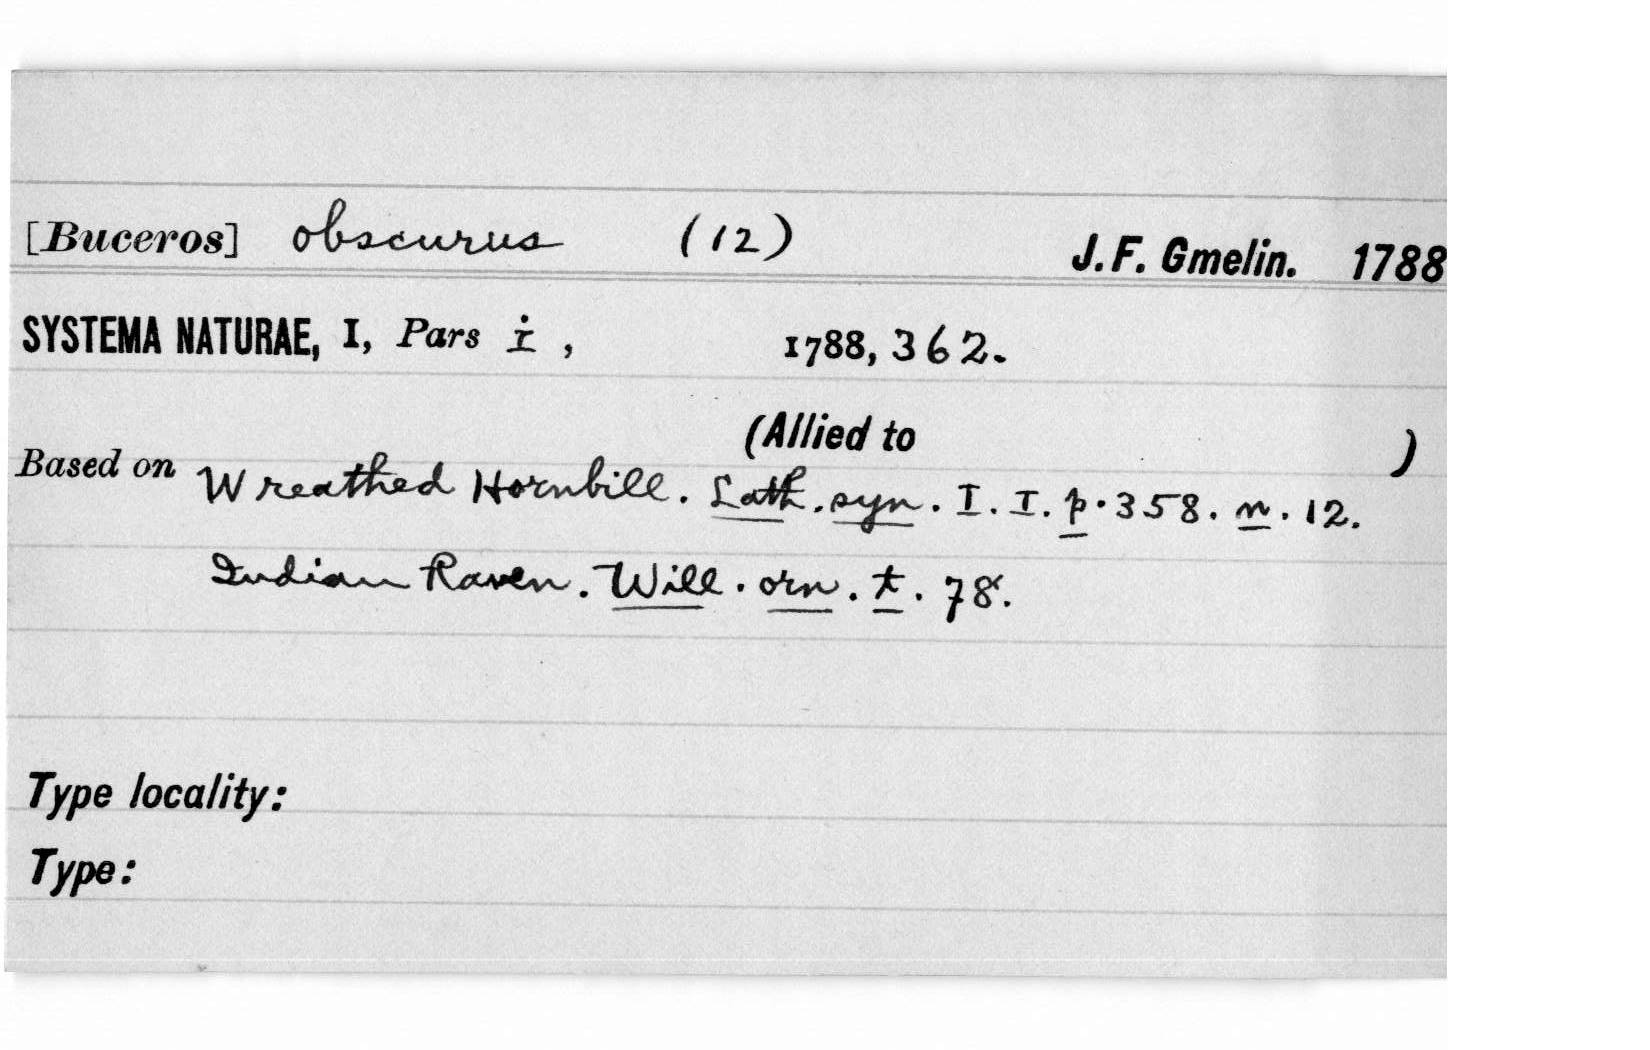 [Buceros] obscurus (12) J. F. Gmelin. 1788
SYSTEMA NATURAE, I, Pars i, 1788, 362.
(Allied to )
Based on Wreathed Hornbill. Lath. syn. I. I. p. 358. n. 12.
Indian Raven. Will. orn. t. 78.
Type locality:
Type: